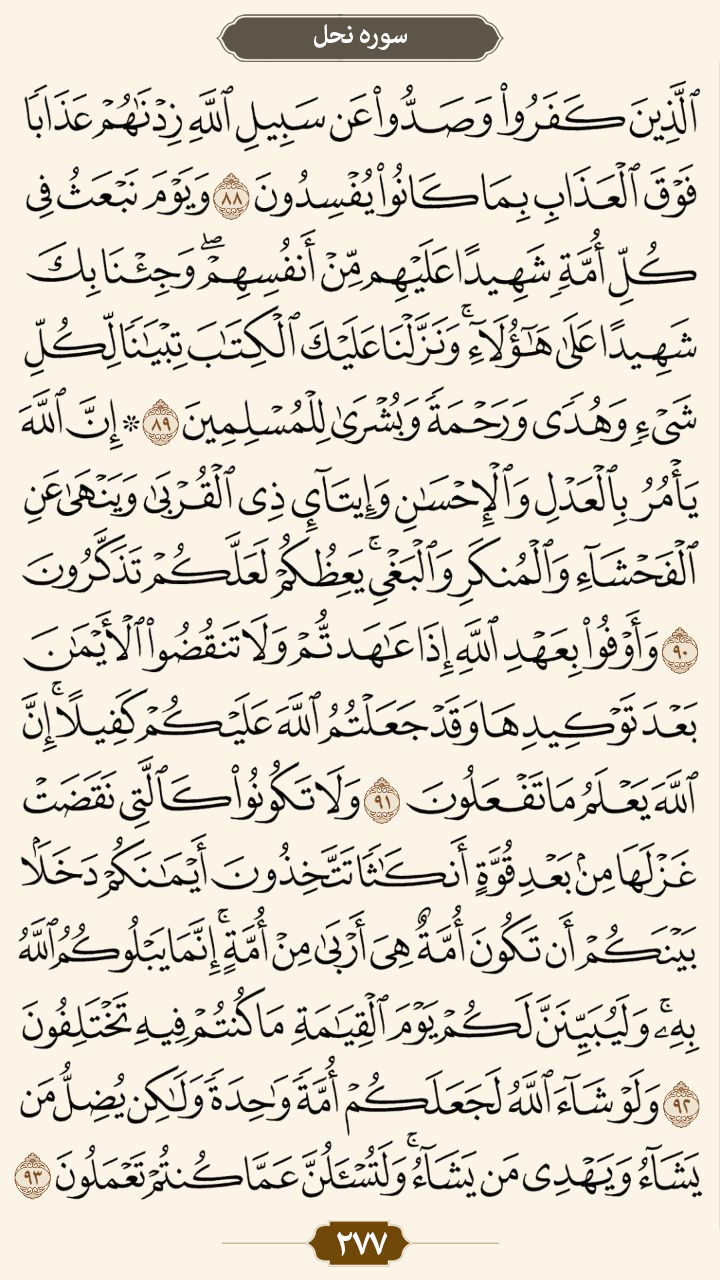 سوره نحل
ٱلَّذِينَ كَفَرُوا۟ وَصَدُّوا۟ عَن سَبِيلِ ٱللَّهِ زِدْنَـٰهُمْ عَذَابًا
فَوْقَ ٱلْعَذَابِ بِمَا كَانُوا۟ يُفْسِدُونَ ٨٨ وَيَوْمَ نَبْعَثُ فِى
كُلِّ أُمَّةٍ شَهِيدًا عَلَيْهِم مِّنْ أَنفُسِهِمْ ۖ وَجِئْنَا بِكَ
شَهِيدًا عَلَىٰ هَـٰٓؤُلَآءِ ۚ وَنَزَّلْنَا عَلَيْكَ ٱلْكِتَـٰبَ تِبْيَـٰنًا لِّكُلِّ
شَىْءٍ وَهُدًى وَرَحْمَةً وَبُشْرَىٰ لِلْمُسْلِمِينَ ٨٩ ۞ إِنَّ ٱللَّهَ
يَأْمُرُ بِٱلْعَدْلِ وَٱلْإِحْسَـٰنِ وَإِيتَآئِ ذِى ٱلْقُرْبَىٰ وَيَنْهَىٰ عَنِ
ٱلْفَحْشَآءِ وَٱلْمُنكَرِ وَٱلْبَغْىِ ۚ يَعِظُكُمْ لَعَلَّكُمْ تَذَكَّرُونَ
٩٠ وَأَوْفُوا۟ بِعَهْدِ ٱللَّهِ إِذَا عَـٰهَدتُّمْ وَلَا تَنقُضُوا۟ ٱلْأَيْمَـٰنَ
بَعْدَ تَوْكِيدِهَا وَقَدْ جَعَلْتُمُ ٱللَّهَ عَلَيْكُمْ كَفِيلًا ۚ إِنَّ
ٱللَّهَ يَعْلَمُ مَا تَفْعَلُونَ ٩١ وَلَا تَكُونُوا۟ كَٱلَّتِى نَقَضَتْ
غَزْلَهَا مِنۢ بَعْدِ قُوَّةٍ أَنكَـٰثًا تَتَّخِذُونَ أَيْمَـٰنَكُمْ دَخَلًۢا
بَيْنَكُمْ أَن تَكُونَ أُمَّةٌ هِىَ أَرْبَىٰ مِنْ أُمَّةٍ ۚ إِنَّمَا يَبْلُوكُمُ ٱللَّهُ
بِهِۦ ۚ وَلَيُبَيِّنَنَّ لَكُمْ يَوْمَ ٱلْقِيَـٰمَةِ مَا كُنتُمْ فِيهِ تَخْتَلِفُونَ
٩٢ وَلَوْ شَآءَ ٱللَّهُ لَجَعَلَكُمْ أُمَّةً وَٰحِدَةً وَلَـٰكِن يُضِلُّ مَن
يَشَآءُ وَيَهْدِى مَن يَشَآءُ ۚ وَلَتُسْـَٔلُنَّ عَمَّا كُنتُمْ تَعْمَلُونَ ٩٣
٢٧٧